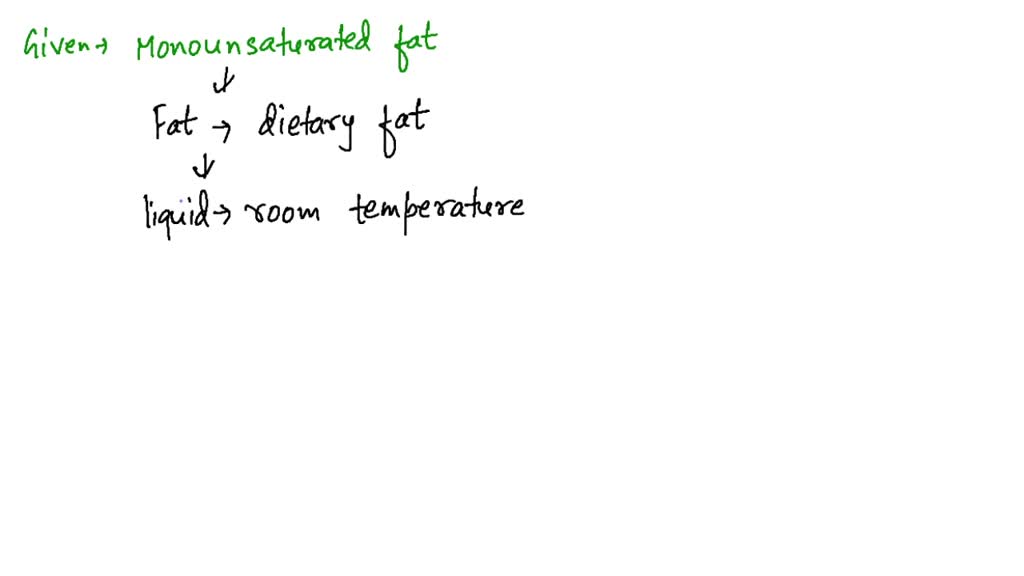 Given→ Monounsaturated fat
↓
Fat → dietary fat
↓
liquid→ room temperature